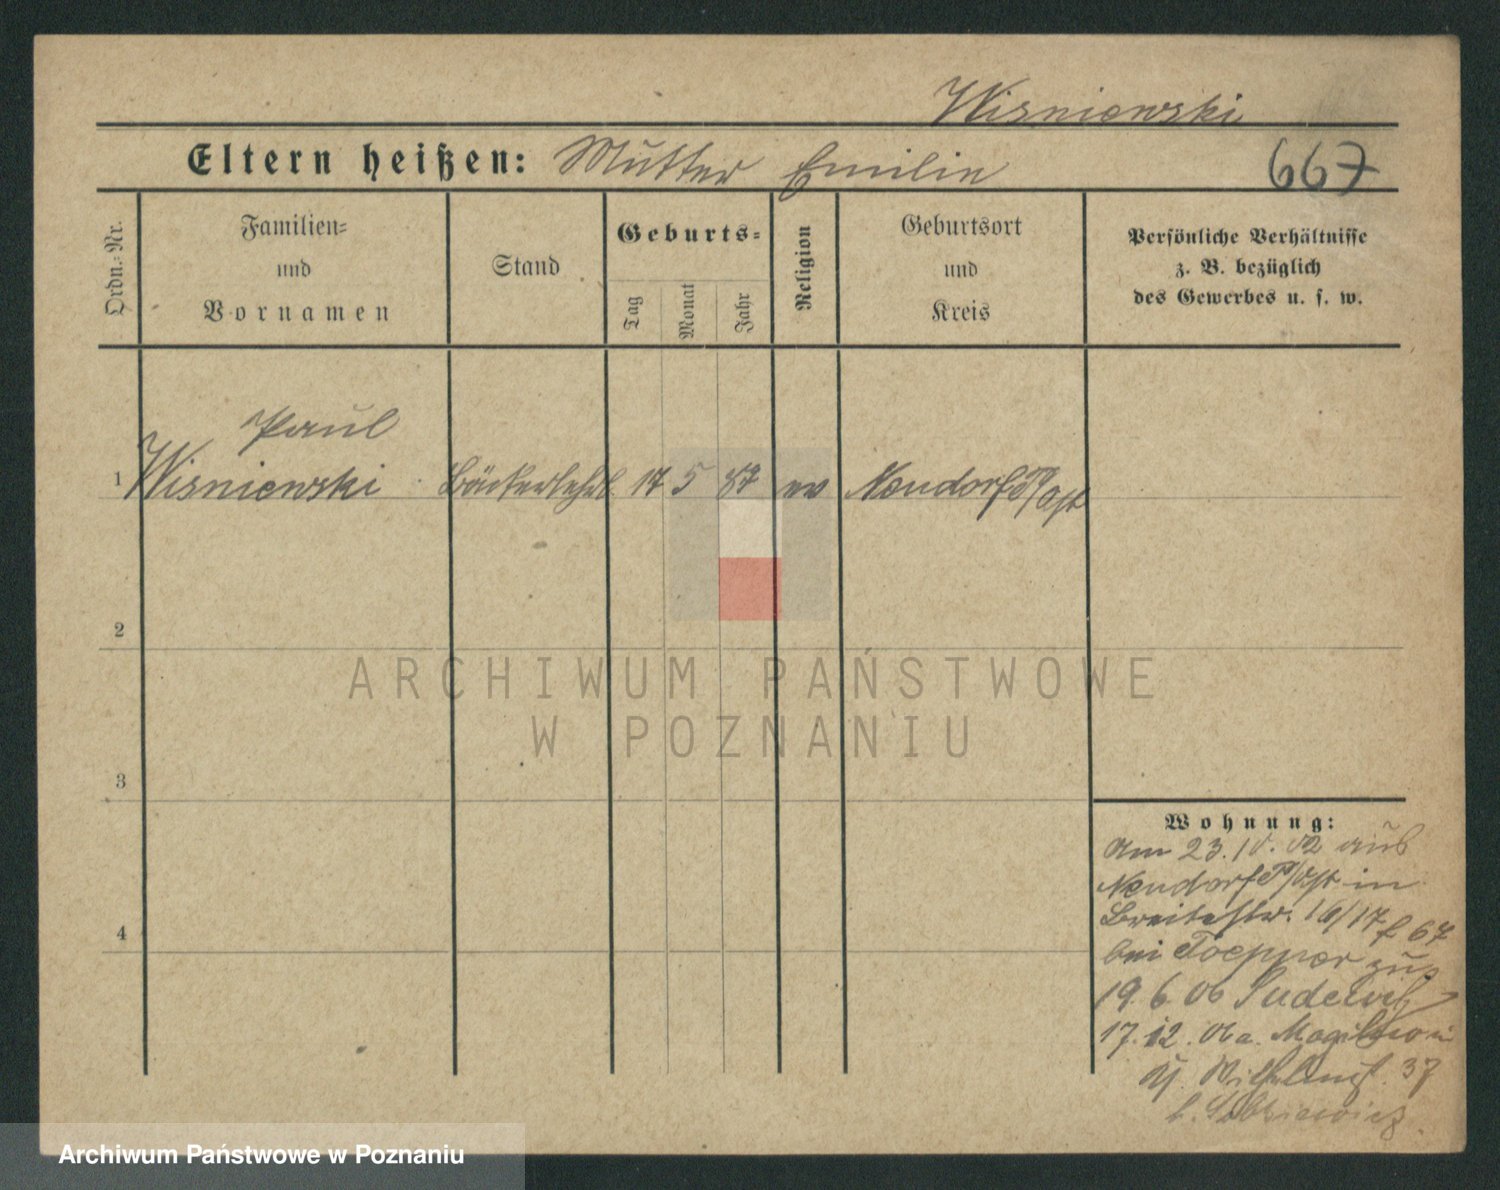 Wisniewski
Eltern heißen: Mutter Emilie
667
Ordn.-Nr.
Familien-
und
Vornamen
Stand
Geburts-
Tag
Monat
Jahr
Religion
Geburtsort
und
Kreis
Persönliche Verhältnisse
z. B. bezüglich
des Gewerbes u. s. w.
Paul
1 Wisniewski Bäckerlehrl. 17 5 87 ev Neudorf
2
ARCHIWUM PAŃSTWOWE
W POZNANIU
3
Wohnung:
am 23. 02 aus
Neudorf in
Breitestr. 16/17 f 67
bei Toepper
19. 6. 06
17. 12. 06 a.
Wilhelmst. 37
4
Archiwum Państwowe w Poznaniu